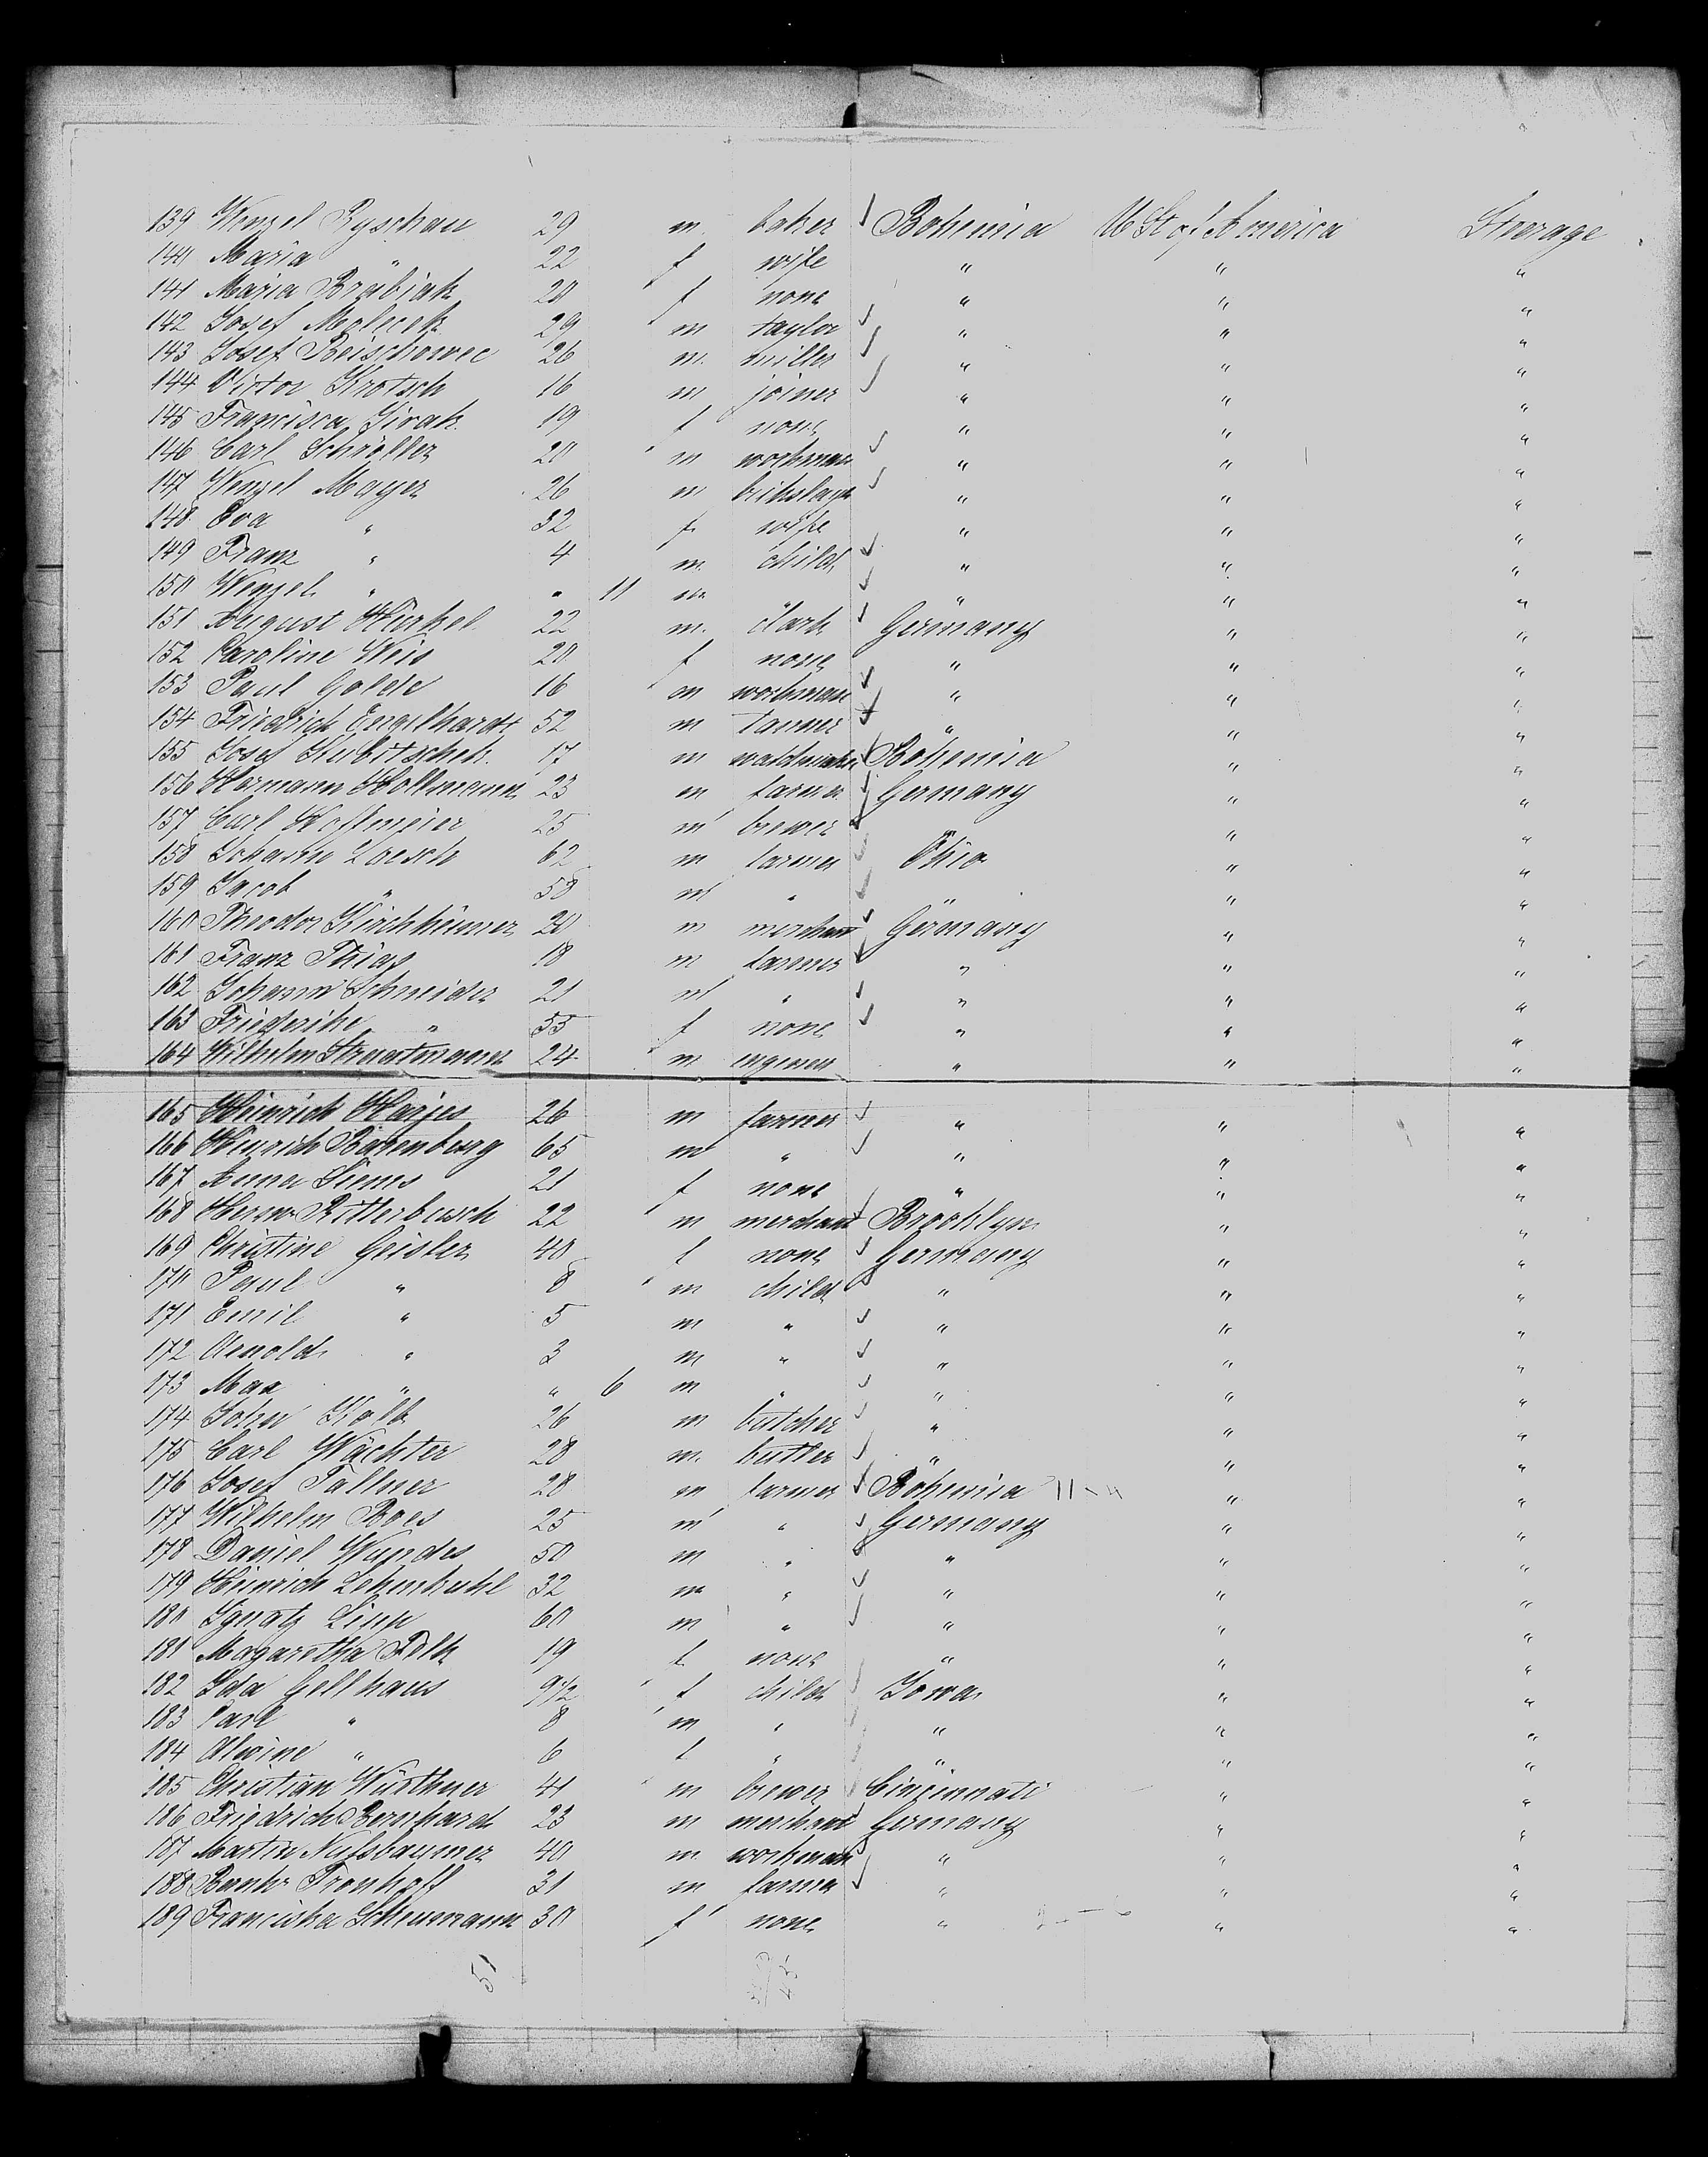 139 Wenzel Ryschau 29 m. baker Bohemia U St of America Steerage
140 Maria " 22 f wife " " "
141 Maria Brabiak 20 f none " " "
142 Josef Molecek 29 m taylor " " "
143 Josef Beischowec 26 m. miller " " "
144 Victor Krotsch 16 m joiner " " "
145 Francisca Jirak 19 f none " " "
146 Carl Schröller 20 m workman " " "
147 Wenzel Mayer 26 m " " "
148 Eva " 32 f wife " " "
149 Franz " 4 m. child " " "
150 Wenzel " " 11 m " " " "
151 August Hürkel 22 m. clark Germany " "
152 Caroline Weis 20 f none " " "
153 Paul Golde 16 m workman " " "
154 Friedrich Engelhardt 52 m farmer " " "
155 Josef Kubitschek 17 m Bohemia " "
156 Hermann Hollmann 23 m farmer Germany " "
157 Carl Hoffmeier 25 m brewer " "
158 Johann Loesch 62 m farmer Ohio " "
159 Jacob " 58 m " " " "
160 Theodor Kirchheimer 20 m merchant Germany " "
161 Franz Thias 18 m farmer " " "
162 Johann Schneider 21 m " " " "
163 Friederike " 55 f none " " "
164 Wilhelm Straatmann 24 m engineer " " "
165 Heinrich Harjes 26 m farmer " " "
166 Heinrich Bärenburg 65 m " " " "
167 Anna Siems 21 f none " " "
168 Herm Ritterbusch 22 m merchant Brooklyn " "
169 Christine Geisler 40 f none Germany " "
170 Paul " 8 m child " " "
171 Emil " 5 m " " " "
172 Arnold " 3 m " " " "
173 Max " " 6 m " " " "
174 John Kolb 26 m butcher " " "
175 Carl Wächter 28 m. butler " " "
176 Josef Fallner 28 m farmer Bohemia " "
177 Wilhelm Boes 25 m " Germany " "
178 Daniel Wundes 50 m " " " "
179 Heinrich Lehmkuhl 32 m " " " "
180 Ignatz Lipp 60 m " " " "
181 Magaretha Folk 19 f none " " "
182 Ida Gellhaus 9 1/2 f child Iowa " "
183 Carl " 8 m " " " "
184 Alwine " 6 f " " " "
185 Christian Würthner 41 m brewer Cincinnati " "
186 Friedrich Bernhardt 23 m merchant Germany " "
187 Martin Nussbaumer 40 m workman " " "
188 Tronhoff 31 m farmer " " "
189 Franciska Scheumann 30 f none " " "
51